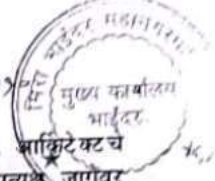 मिरा भाईंदर महानगरपा
मुख्य कार्यालय
भाईंदर.
आर्किटेक्ट च
प्रत्यक्ष जागेवर